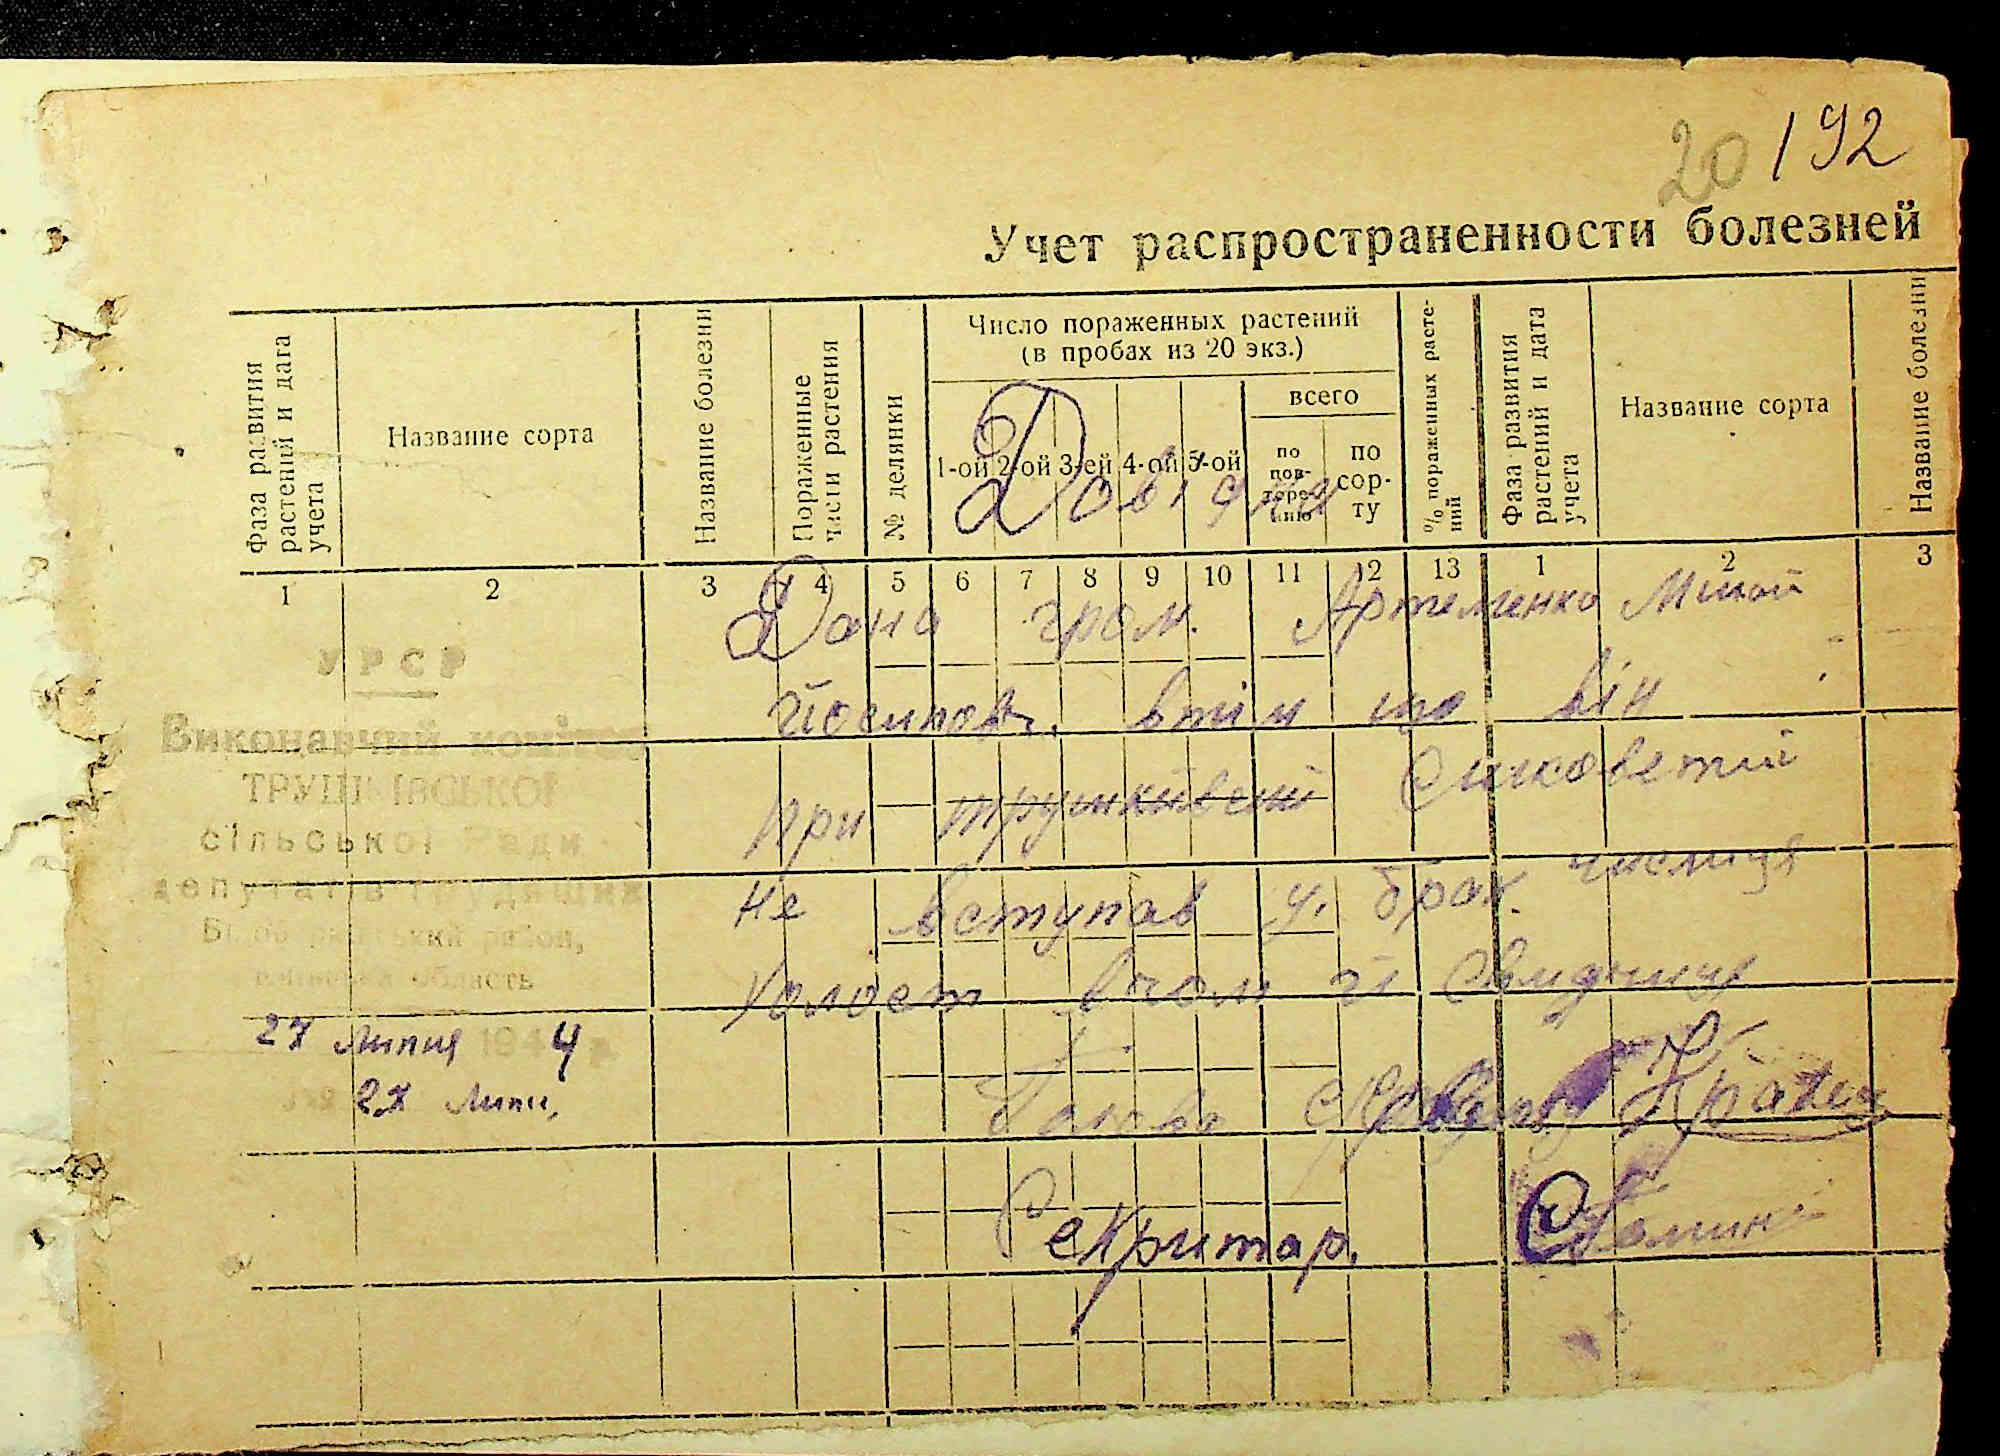 20 192
Учет распространенности болезней
Фаза развития растений и дата учета
Название сорта
Название болезни
Пораженные части растения
№ делянки
Число пораженных растений
(в пробах из 20 экз.)
1-ой 2-ой 3-ей 4-ой 5-ой
всего
по пов-торе-нию
по сор-ту
% пораженных расте-ний
Фаза развития растений и дата учета
Название сорта
Название болезни
1 2 3 4 5 6 7 8 9 10 11 12 13 1 2 3
Довідка
Дана гром. Артеменко
Йосипов. втім що він
при трушківский
не вступав у. брак. числиця
холост вчом й свидчиця
Голова
Секритар.
УРСР
Виконавчий комітет
ТРУШКІВСЬКОЇ
сільської Ради
депутатів трудящих
район,
область
27 липня 1944 р.
№ 27 липн,